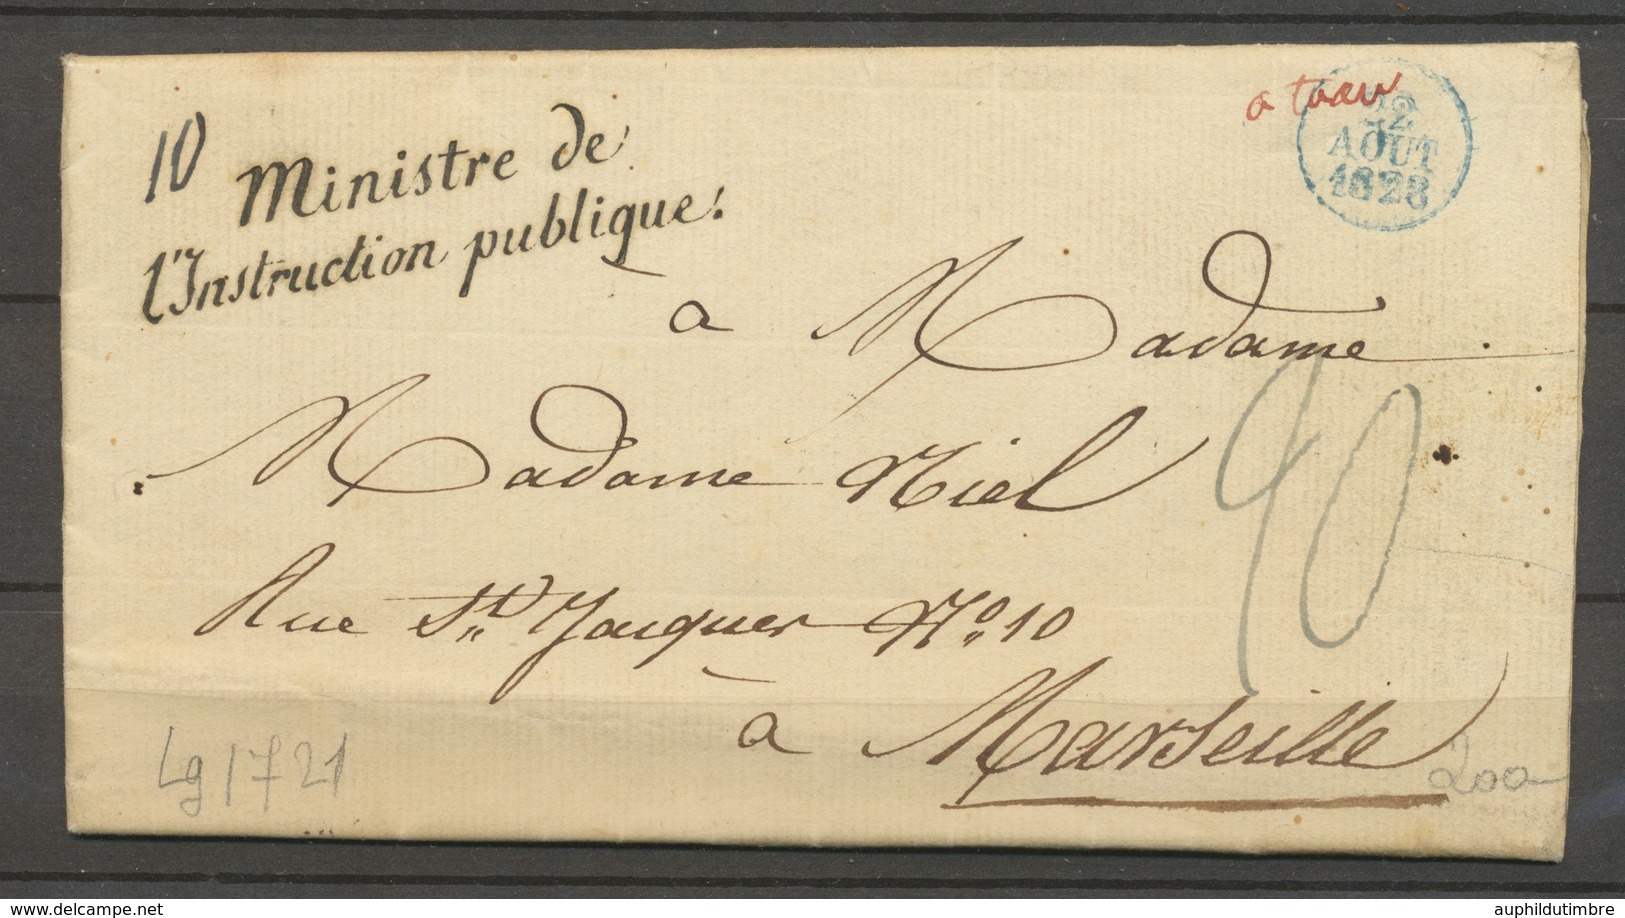 10
Ministre de
l'Instruction publique.
22
AOUT
1828
à Madame
Madame Niel
Rue St. Jacques No. 10
à Marseille
90
Lg 1721
200
auphildutimbre.com
auphildutimbre